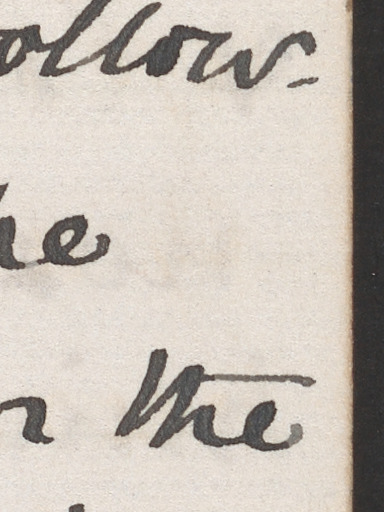 ollow-
he
n the